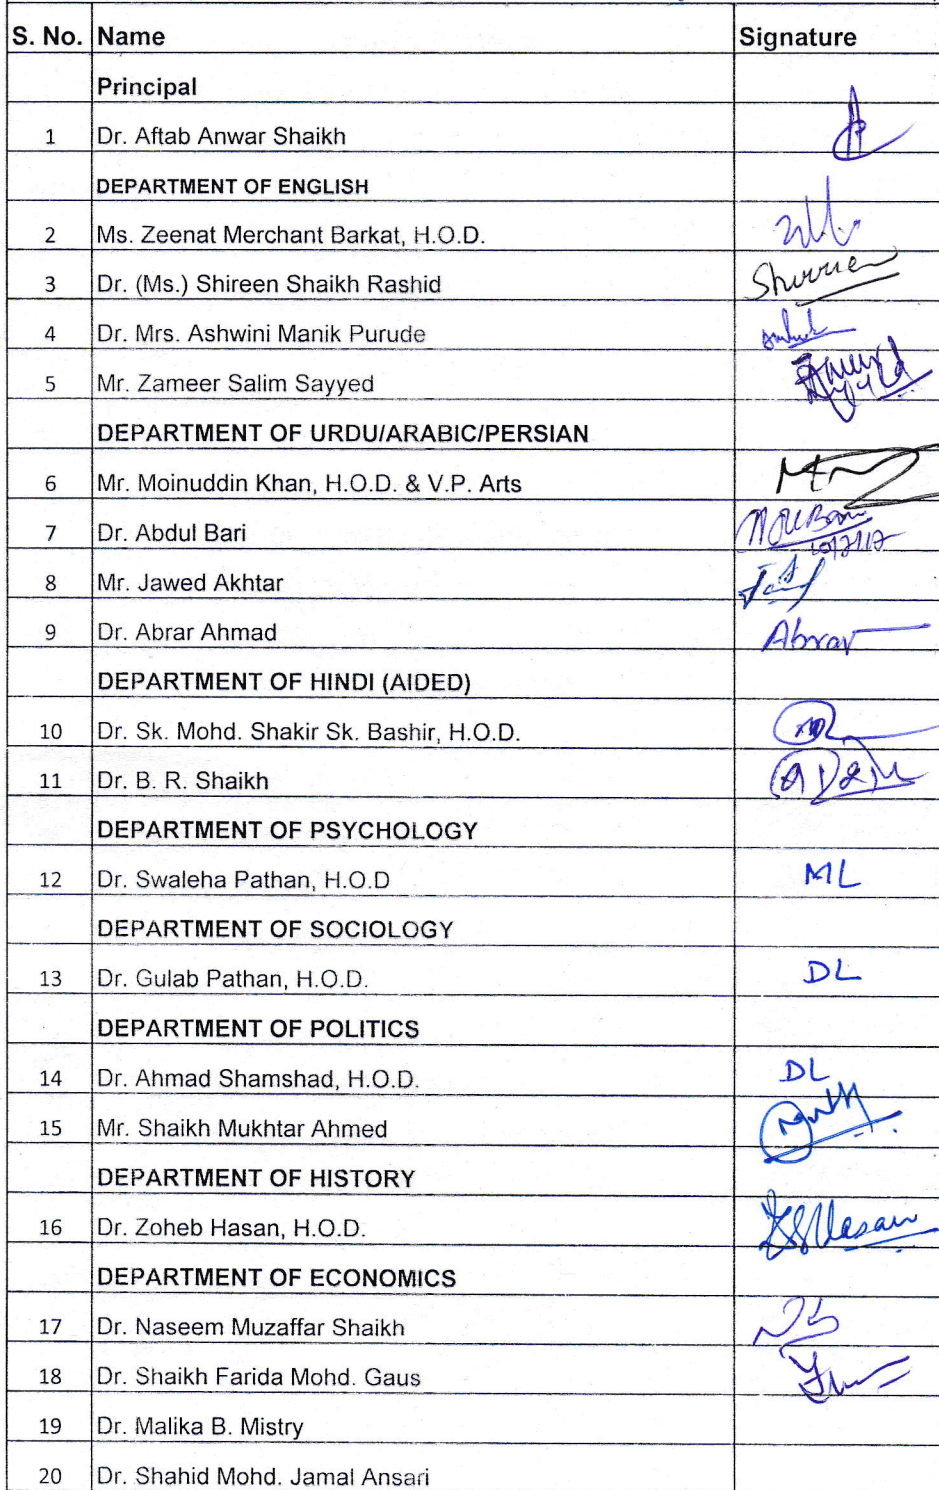 S. No. Name Signature
Principal
1 Dr. Aftab Anwar Shaikh
DEPARTMENT OF ENGLISH
2 Ms. Zeenat Merchant Barkat, H.O.D.
3 Dr. (Ms.) Shireen Shaikh Rashid Shireen
4 Dr. Mrs. Ashwini Manik Purude
5 Mr. Zameer Salim Sayyed
DEPARTMENT OF URDU/ARABIC/PERSIAN
6 Mr. Moinuddin Khan, H.O.D. & V.P. Arts
7 Dr. Abdul Bari
8 Mr. Jawed Akhtar
9 Dr. Abrar Ahmad Abrar
DEPARTMENT OF HINDI (AIDED)
10 Dr. Sk. Mohd. Shakir Sk. Bashir, H.O.D.
11 Dr. B. R. Shaikh
DEPARTMENT OF PSYCHOLOGY
12 Dr. Swaleha Pathan, H.O.D ML
DEPARTMENT OF SOCIOLOGY
13 Dr. Gulab Pathan, H.O.D. DL
DEPARTMENT OF POLITICS
14 Dr. Ahmad Shamshad, H.O.D. DL
15 Mr. Shaikh Mukhtar Ahmed
DEPARTMENT OF HISTORY
16 Dr. Zoheb Hasan, H.O.D.
DEPARTMENT OF ECONOMICS
17 Dr. Naseem Muzaffar Shaikh
18 Dr. Shaikh Farida Mohd. Gaus
19 Dr. Malika B. Mistry
20 Dr. Shahid Mohd. Jamal Ansari